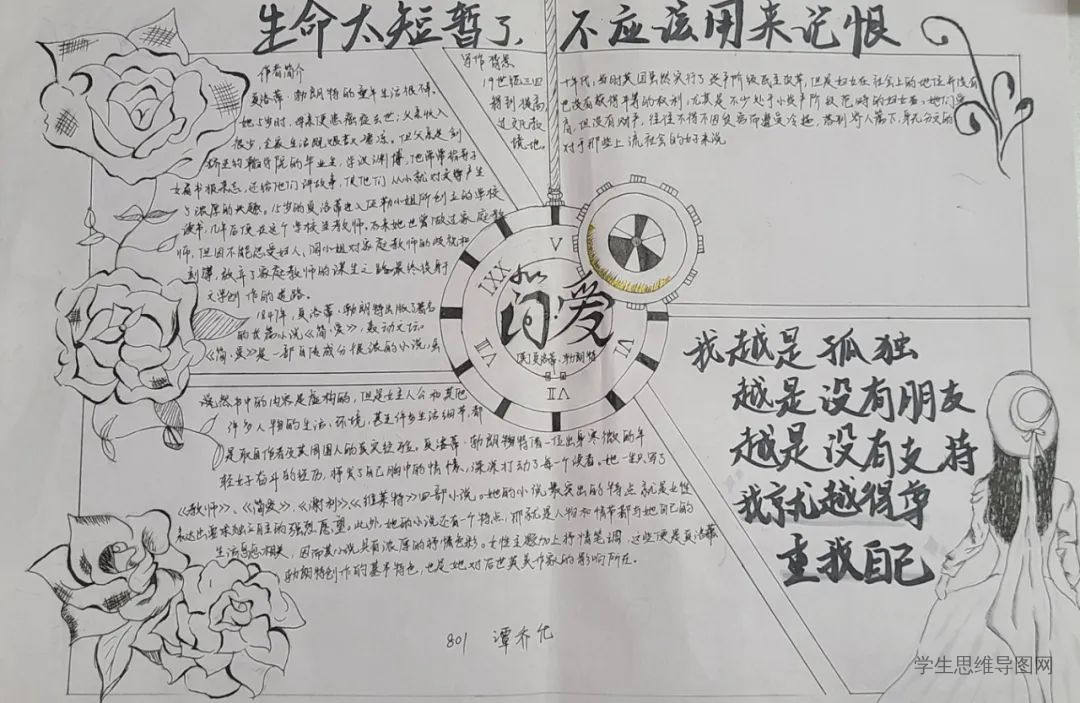 生命太短暂了,不应该用来记恨
作者简介
夏洛蒂·勃朗特的童年生活很不幸。
她5岁时,母亲便患癌症去世;父亲收入
很少,全家生活既艰苦又凄凉。但父亲是剑
桥圣约翰学院的毕业生,学识渊博,他常常指导子
女看书报杂志,还给他们讲故事,使他们从小就对文学产生
了浓厚的兴趣。15岁的夏洛蒂进入伍勒小姐所创立的学校
读书,几年后便在这个学校当教师。后来她也曾做过家庭教
师,但因不能忍受妇人、阔小姐对家庭教师的歧视和
刻薄,放弃了家庭教师的谋生之路最终投身于
文学创作的道路。
1847年,夏洛蒂·勃朗特出版了著名
的长篇小说《简·爱》,轰动文坛。
《简·爱》是一部自传成分很浓的小说,虽
写作背景
19世纪三四
得到提高,
过文化教
境地。
十年代,当时英国虽然实行了资产阶级民主改革,但是妇女在社会上的地位并没有
也没有获得平等的权利,尤其是不少处于小资产阶级范畴的妇女者。她们受
育,但没有财产,往往不得不因贫富而遭受冷遇,落到旁人篱下,身无分文的
对于那些上流社会的好来说
V
IXX
简·爱
[英]夏洛蒂·勃朗特
VI
VII
VII
然然书中的内容是虚构的,但是女主人公和其他
许多人物的生活、环境,甚至许多生活细节,都
是取自作者及其周围人的真实经验。夏洛蒂·勃朗特
轻女子奋斗的经历,抒发了自己胸中的情愫,深深打动了每个读者。她一生只写了
《教师》、《简爱》、《谢利》《维莱特》四部小说。她的小说最突出的特点就是女性
表达出要求独立自主的强烈愿望。此外她的小说还有个特点,那就是人物和情节都与她自己的
生活息息相关,因而其小说具有浓厚的抒情色彩。女性主题加上抒情笔调,这些便是夏洛蒂
勃朗特创作的基本特色,也是她对后世英美作家的影响所在。
我越是孤独
越是没有朋友
越是没有支持
我就越得尊
重我自己
801 谭乔化
学生思维导图网